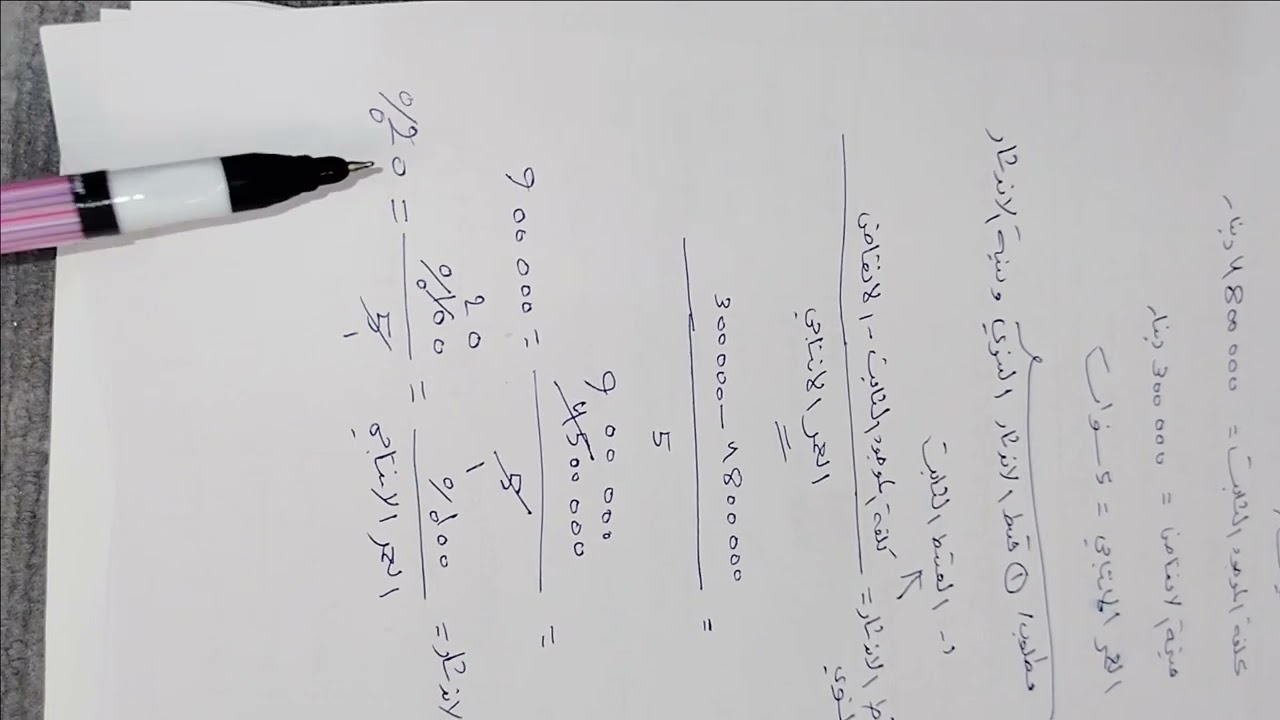 كلفة الموجود الثابت = 4800000 دينار
قيمة الانقاض = 300000 دينار
العمر الانتاجي = 5 سنوات
مطلوب / ① قسط الاندثار السنوي ونسبة الاندثار
د- القسط الثابت
قسط الاندثار السنوي = كلفة الموجود الثابت - الانقاض
العمر الانتاجي
= 4800000 - 300000
5
= 4500000 900 000 = 900000
5 1
الاندثار = %100 = %100 20 = %20
العمر الانتاجي 5 1